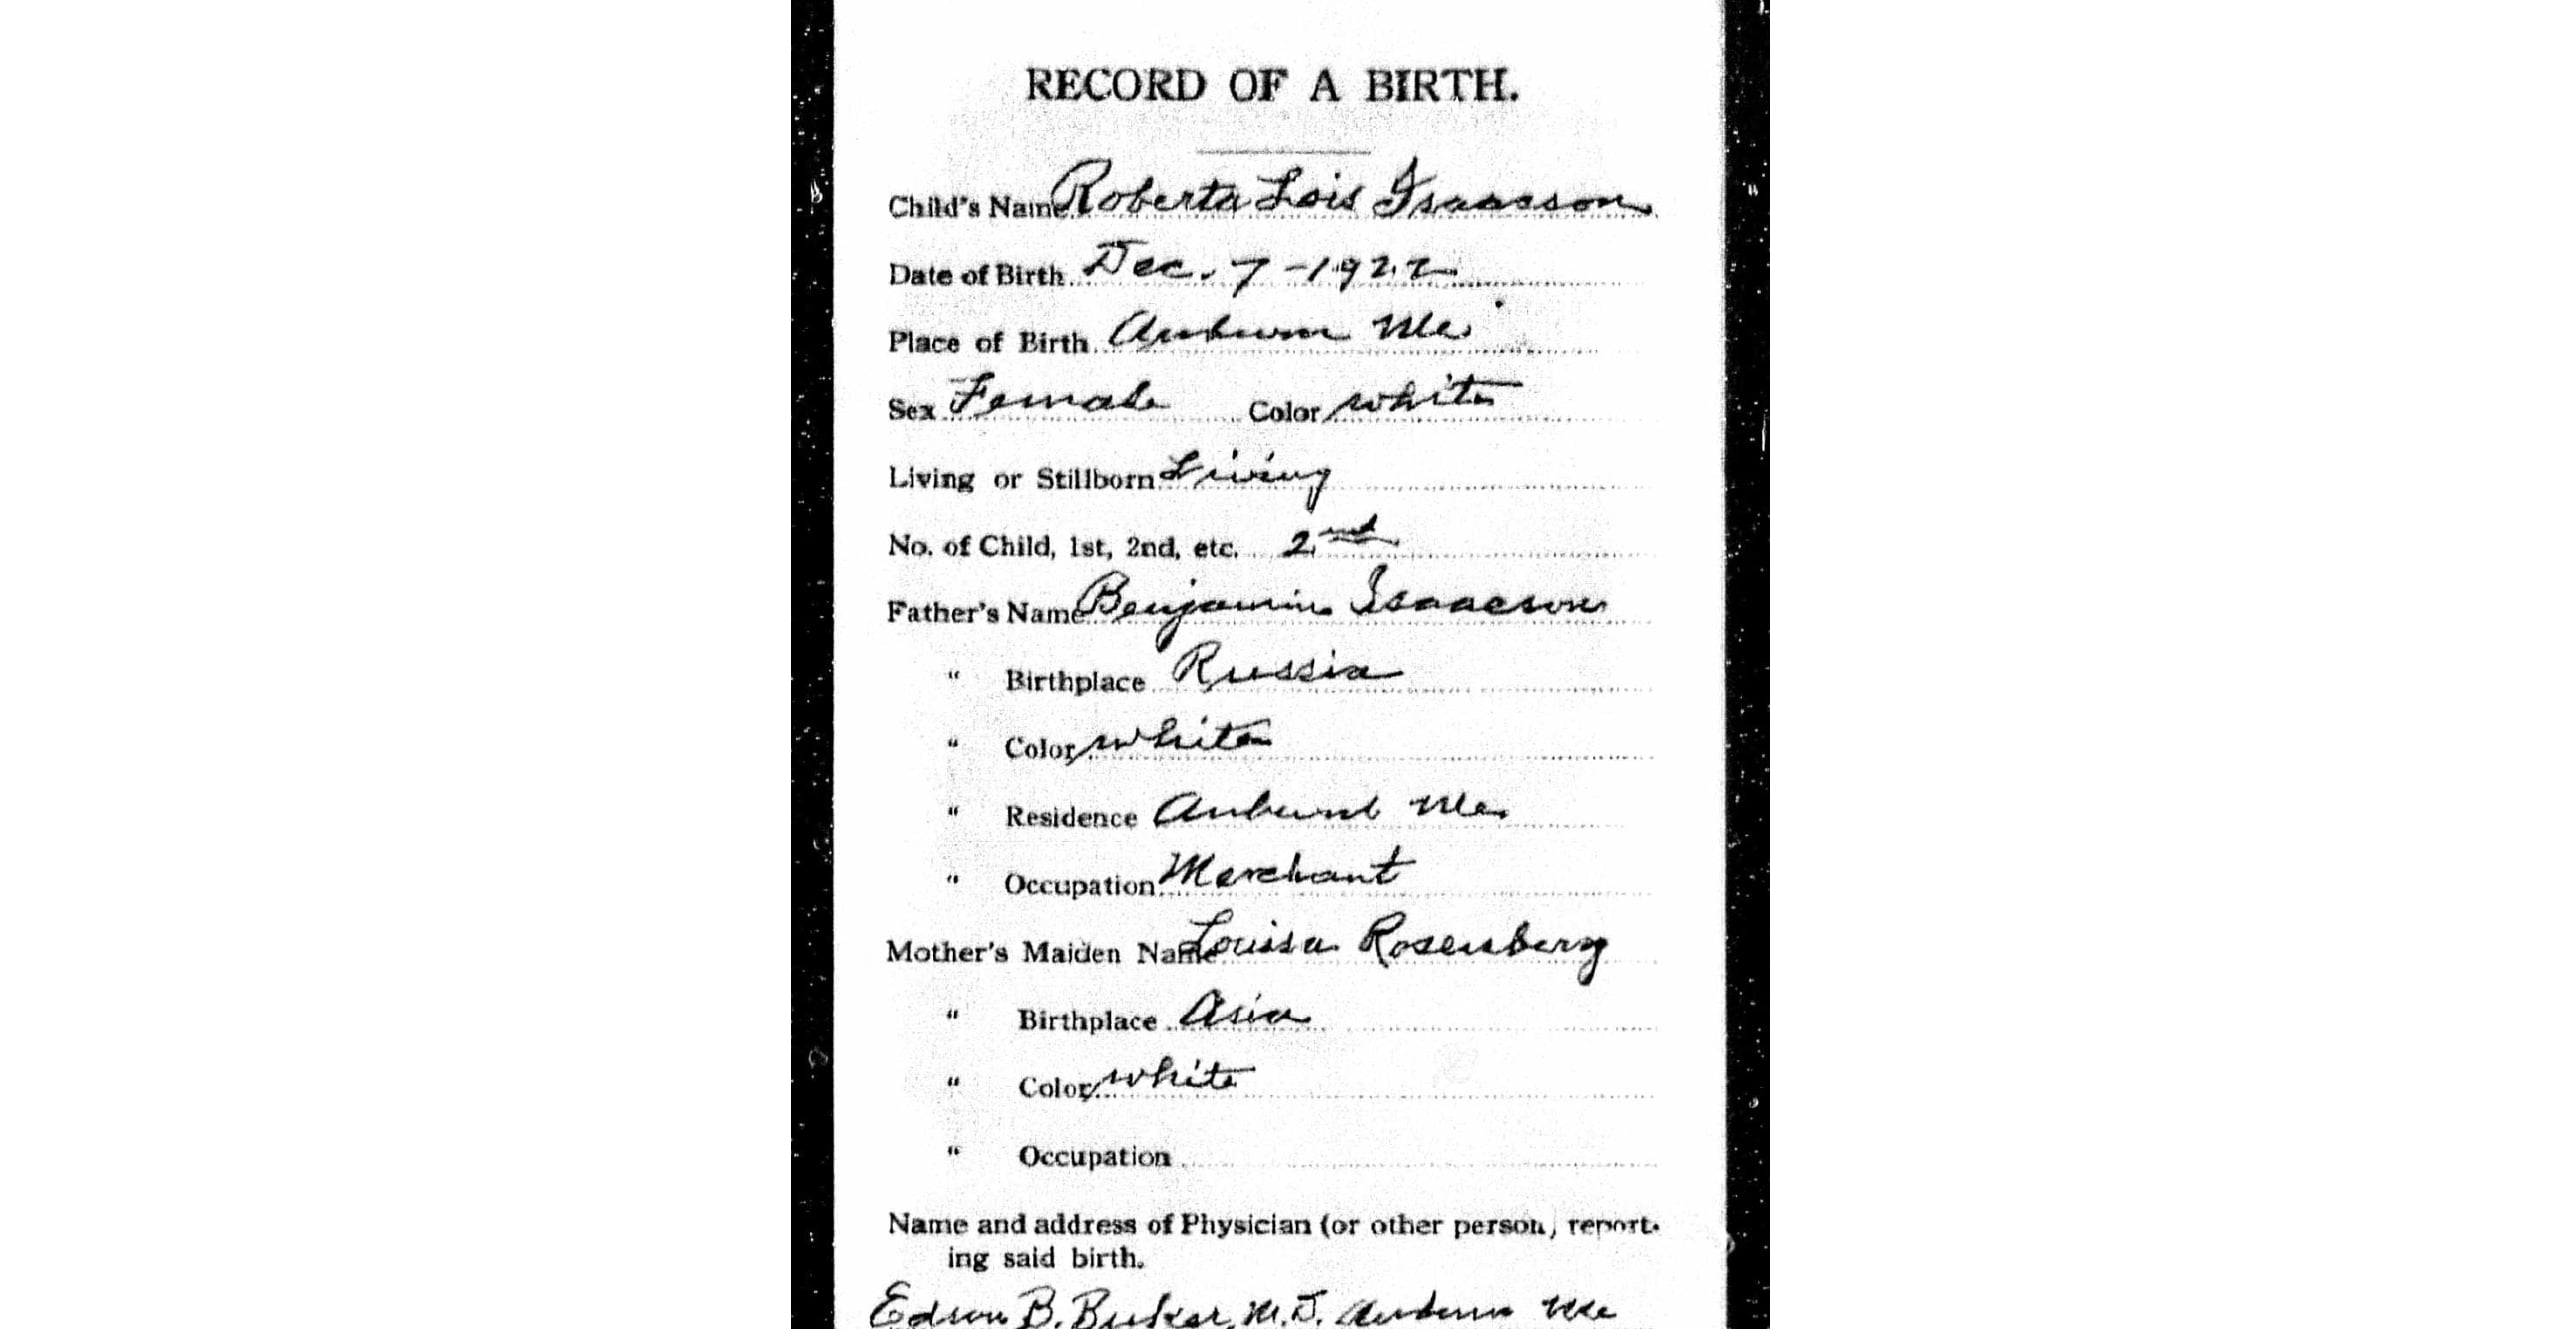 RECORD OF A BIRTH.
Child's Name Roberta Lois Isaacson
Date of Birth Dec. 7-1922
Place of Birth Auburn Me.
Sex Female Color white
Living or Stillborn Living
No. of Child, 1st, 2nd, etc. 2nd
Father's Name Benjamin Isaacson
" Birthplace Russia
" Color white
" Residence Auburn Me.
" Occupation Merchant
Mother's Maiden Name Louisa Rosenberg
" Birthplace Asia
" Color white
" Occupation
Name and address of Physician (or other person) report-
ing said birth.
Edson B. Buker, M.D. Auburn Me